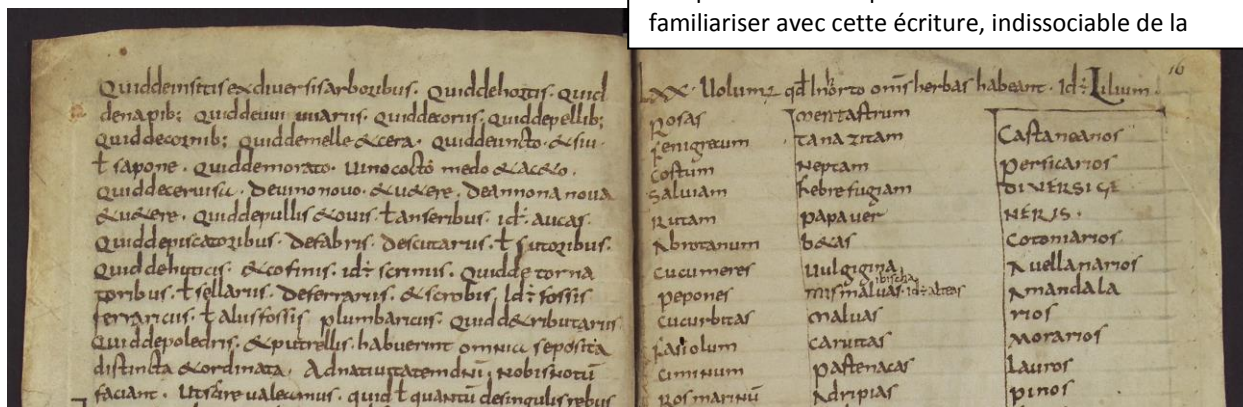 familiariser avec cette écriture, indissociable de la
Quid de insitis ex diversis arboribus. Quid de hortis. Quid
de napib; Quid de uui uuariis. Quid de coriis. Quid de pellib;
Quid de cornib; Quid de melle & cera. Quid de uncto. & siu
ł sapone. Quid de morato. Uino cocto medo & aceto.
Quid de ceruisa. De uino nouo. & uetere. De annona noua
& uetere. Quid de pullis & ouis. ł anseribus. id÷ aucas.
Quid de piscatoribus. De fabris. De scutariis. ł sutoribus.
Quid de huticis. & cofinis. id÷ scriniis. Quid de torna
toribus. ł sellariis. De ferrariis. & scrobis. Id÷ fossis
ferrariciis. ł aliis fossis plumbariciis. Quid de tributariis
Quid de poledris. & putrellis. habuerint omnia seposita
distincta & ordinata. Ad natiuitatem dni nobis notū
faciant. Ut scire ualeamus. quid ł quantū de singulis rebus
16
LXX. Uolumus qđ In horto omīs herbas habeant. Id÷ Lilium.
Rosas
Fenigrecum
Costum
Saluiam
Rutam
Abrotanum
Cucumeres
Pepones
Cucurbitas
Fasiolum
Ciminum
Ros marinū
mentastrum
tanazitam
Neptam
Febrefugiam
Papauer
betas
Uulgigina
ibischa
mismaluas id÷ alteas
Maluas
Caruitas
Pastenacas
Adripias
Castaneanos
Persicarios
DIVERSI GE
NERIS.
Cotoniarios
Auellanarios
Amandala
rios
Morarios
Lauros
Pinos